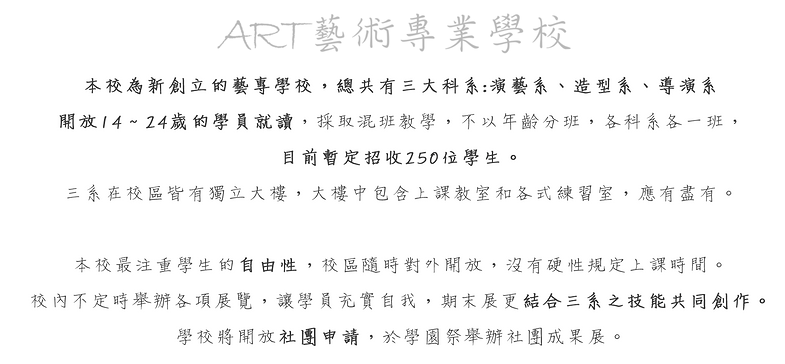 ART藝術專業學校
本校為新創立的藝專學校，總共有三大科系:演藝系、造型系、導演系
開放14~24歲的學員就讀，採取混班教學，不以年齡分班，各科系各一班，
目前暫定招收250位學生。
三系在校區皆有獨立大樓，大樓中包含上課教室和各式練習室，應有盡有。
本校最注重學生的自由性，校區隨時對外開放，沒有硬性規定上課時間。
校內不定時舉辦各項展覽，讓學員充實自我，期末展更結合三系之技能共同創作。
學校將開放社團申請，於學園祭舉辦社團成果展。